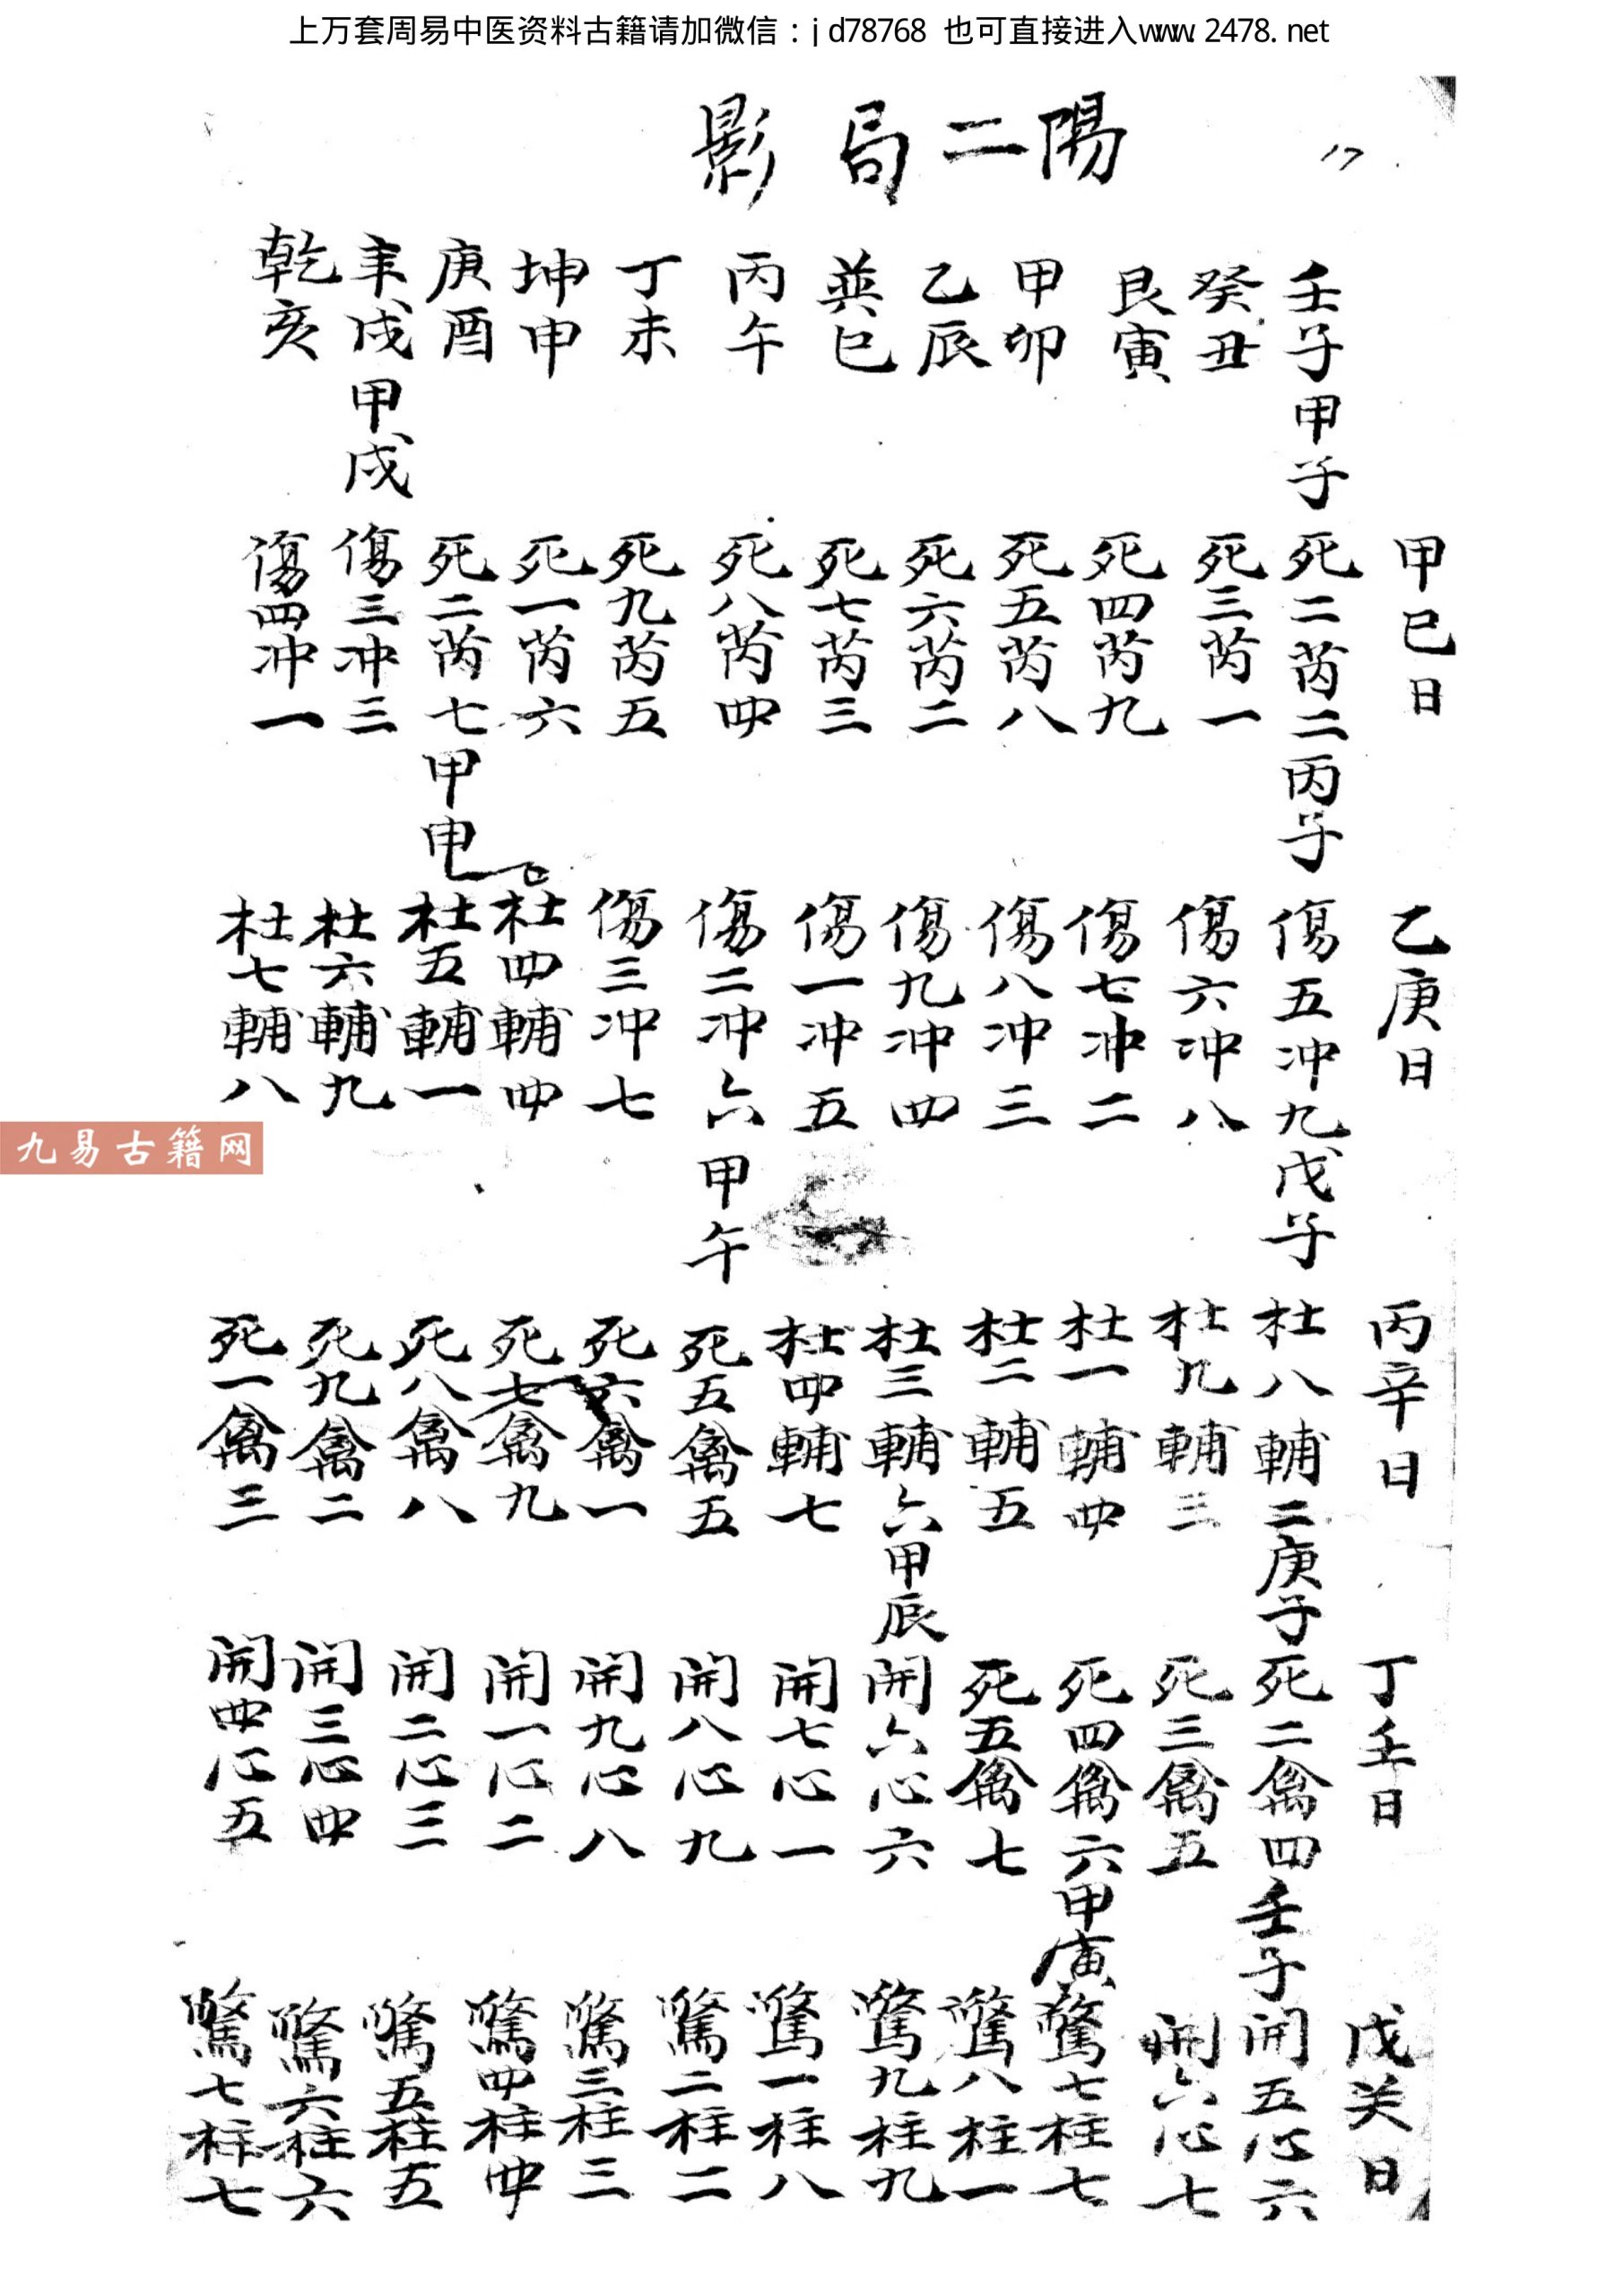 上万套周易中医资料古籍请加微信：jd78768 也可直接进入www.2478.net
17
陽二局影
甲巳日 乙庚日 丙辛日 丁壬日 戊关日
壬子甲子 死二芮二丙子 傷五冲九戊子 杜八輔二庚子 死二禽四壬子 開五心六
癸丑 死三芮一 傷六冲八 杜九輔三 死三禽五 開六心七
艮寅 死四芮九 傷七冲二 杜一輔四 死四禽六甲寅 驚七柱七
甲卯 死五芮八 傷八冲三 杜二輔五 死五禽七 驚八柱一
乙辰 死六芮二 傷九冲四 杜三輔六甲辰 開六心六 驚九柱九
巽巳 死七芮三 傷一冲五 杜四輔七 開七心一 驚一柱八
丙午 死八芮四 傷二冲六甲午 死五禽五 開八心九 驚二柱二
丁未 死九芮五 傷三冲七 死六禽一 開九心八 驚三柱三
坤申 死一芮六 杜四輔四 死七禽九 開一心二 驚四柱四
庚酉 死二芮七甲申 杜五輔一 死八禽八 開二心三 驚五柱五
辛戌甲戌 傷三冲三 杜六輔九 死九禽二 開三心四 驚六柱六
乾亥 傷四冲一 杜七輔八 死一禽三 開四心五 驚七柱七
九易古籍网